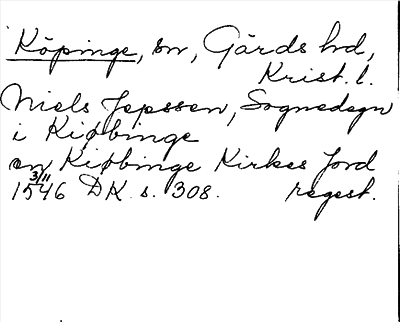 Köpinge, sn, Gärds hd,
Krist. l.
Niels Jepssen, Sognedegn
i Kiøbinge
en Kiøbinge Kirkes Jord
3/11
1546 DK s. 308. regest.